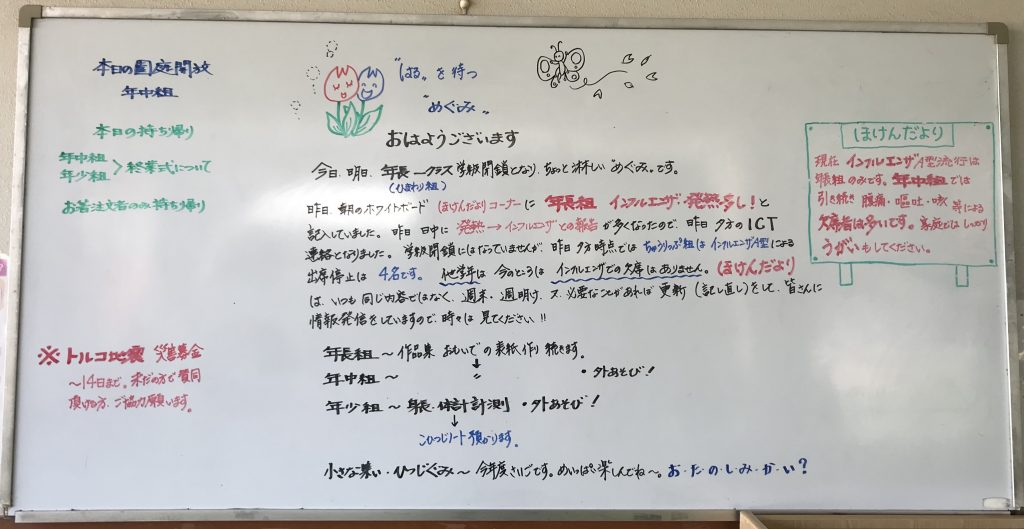 本日の園庭開放
年中組
本日の持ち帰り
年中組
年少組 > 終業式について
お着注文者のみ持ち帰り
※トルコ地震 災害募金
～14日まで。未だの方で賛同
頂ける方、ご協力願います。
"はる"を待つ
"めぐみ"
おはようございます
今日、明日、年長一クラス学級閉鎖となり、ちょっと淋しい"めぐみ"です。
(ひまわり組)
昨日、朝のホワイトボード (ほけんだよりコーナー)に 年長組 インフルエンザ・発熱多し!と
記入していました。昨日 日中に 発熱→インフルエンザとの報告が多くなったので、昨日 夕方のICT
連絡となりました。学級閉鎖にはなっていませんが、昨日夕方時点では ちゅうりっぷ組はインフルエンザA型による
出席停止は 4名です。他学年は 今のところは インフルエンザでの欠席はありません。(ほけんだより
は、いつも同じ内容ではなく、週末・週明け、又、必要なことがあれば 更新(記し直し)をして、皆さんに
情報発信をしていますので、時々は見てください!!
年長組～作品集 おもいでの表紙作り 続きます。
↓
年中組～ 〃 ・外あそび!
年少組～身長・体計計測 ・外あそび!
↓
こひつじノート預かります。
小さな集い・ひつじぐみ～今年度さいごです。めいっぱい楽しんでね～。お・た・の・し・み・か・い?
ほけんだより
現在 インフルエンザA型流行は
年長組のみです。年中組では
引き続き 腹痛・嘔吐・咳 等による
欠席者は多いです。家庭ではしっかり
うがいもしてください。